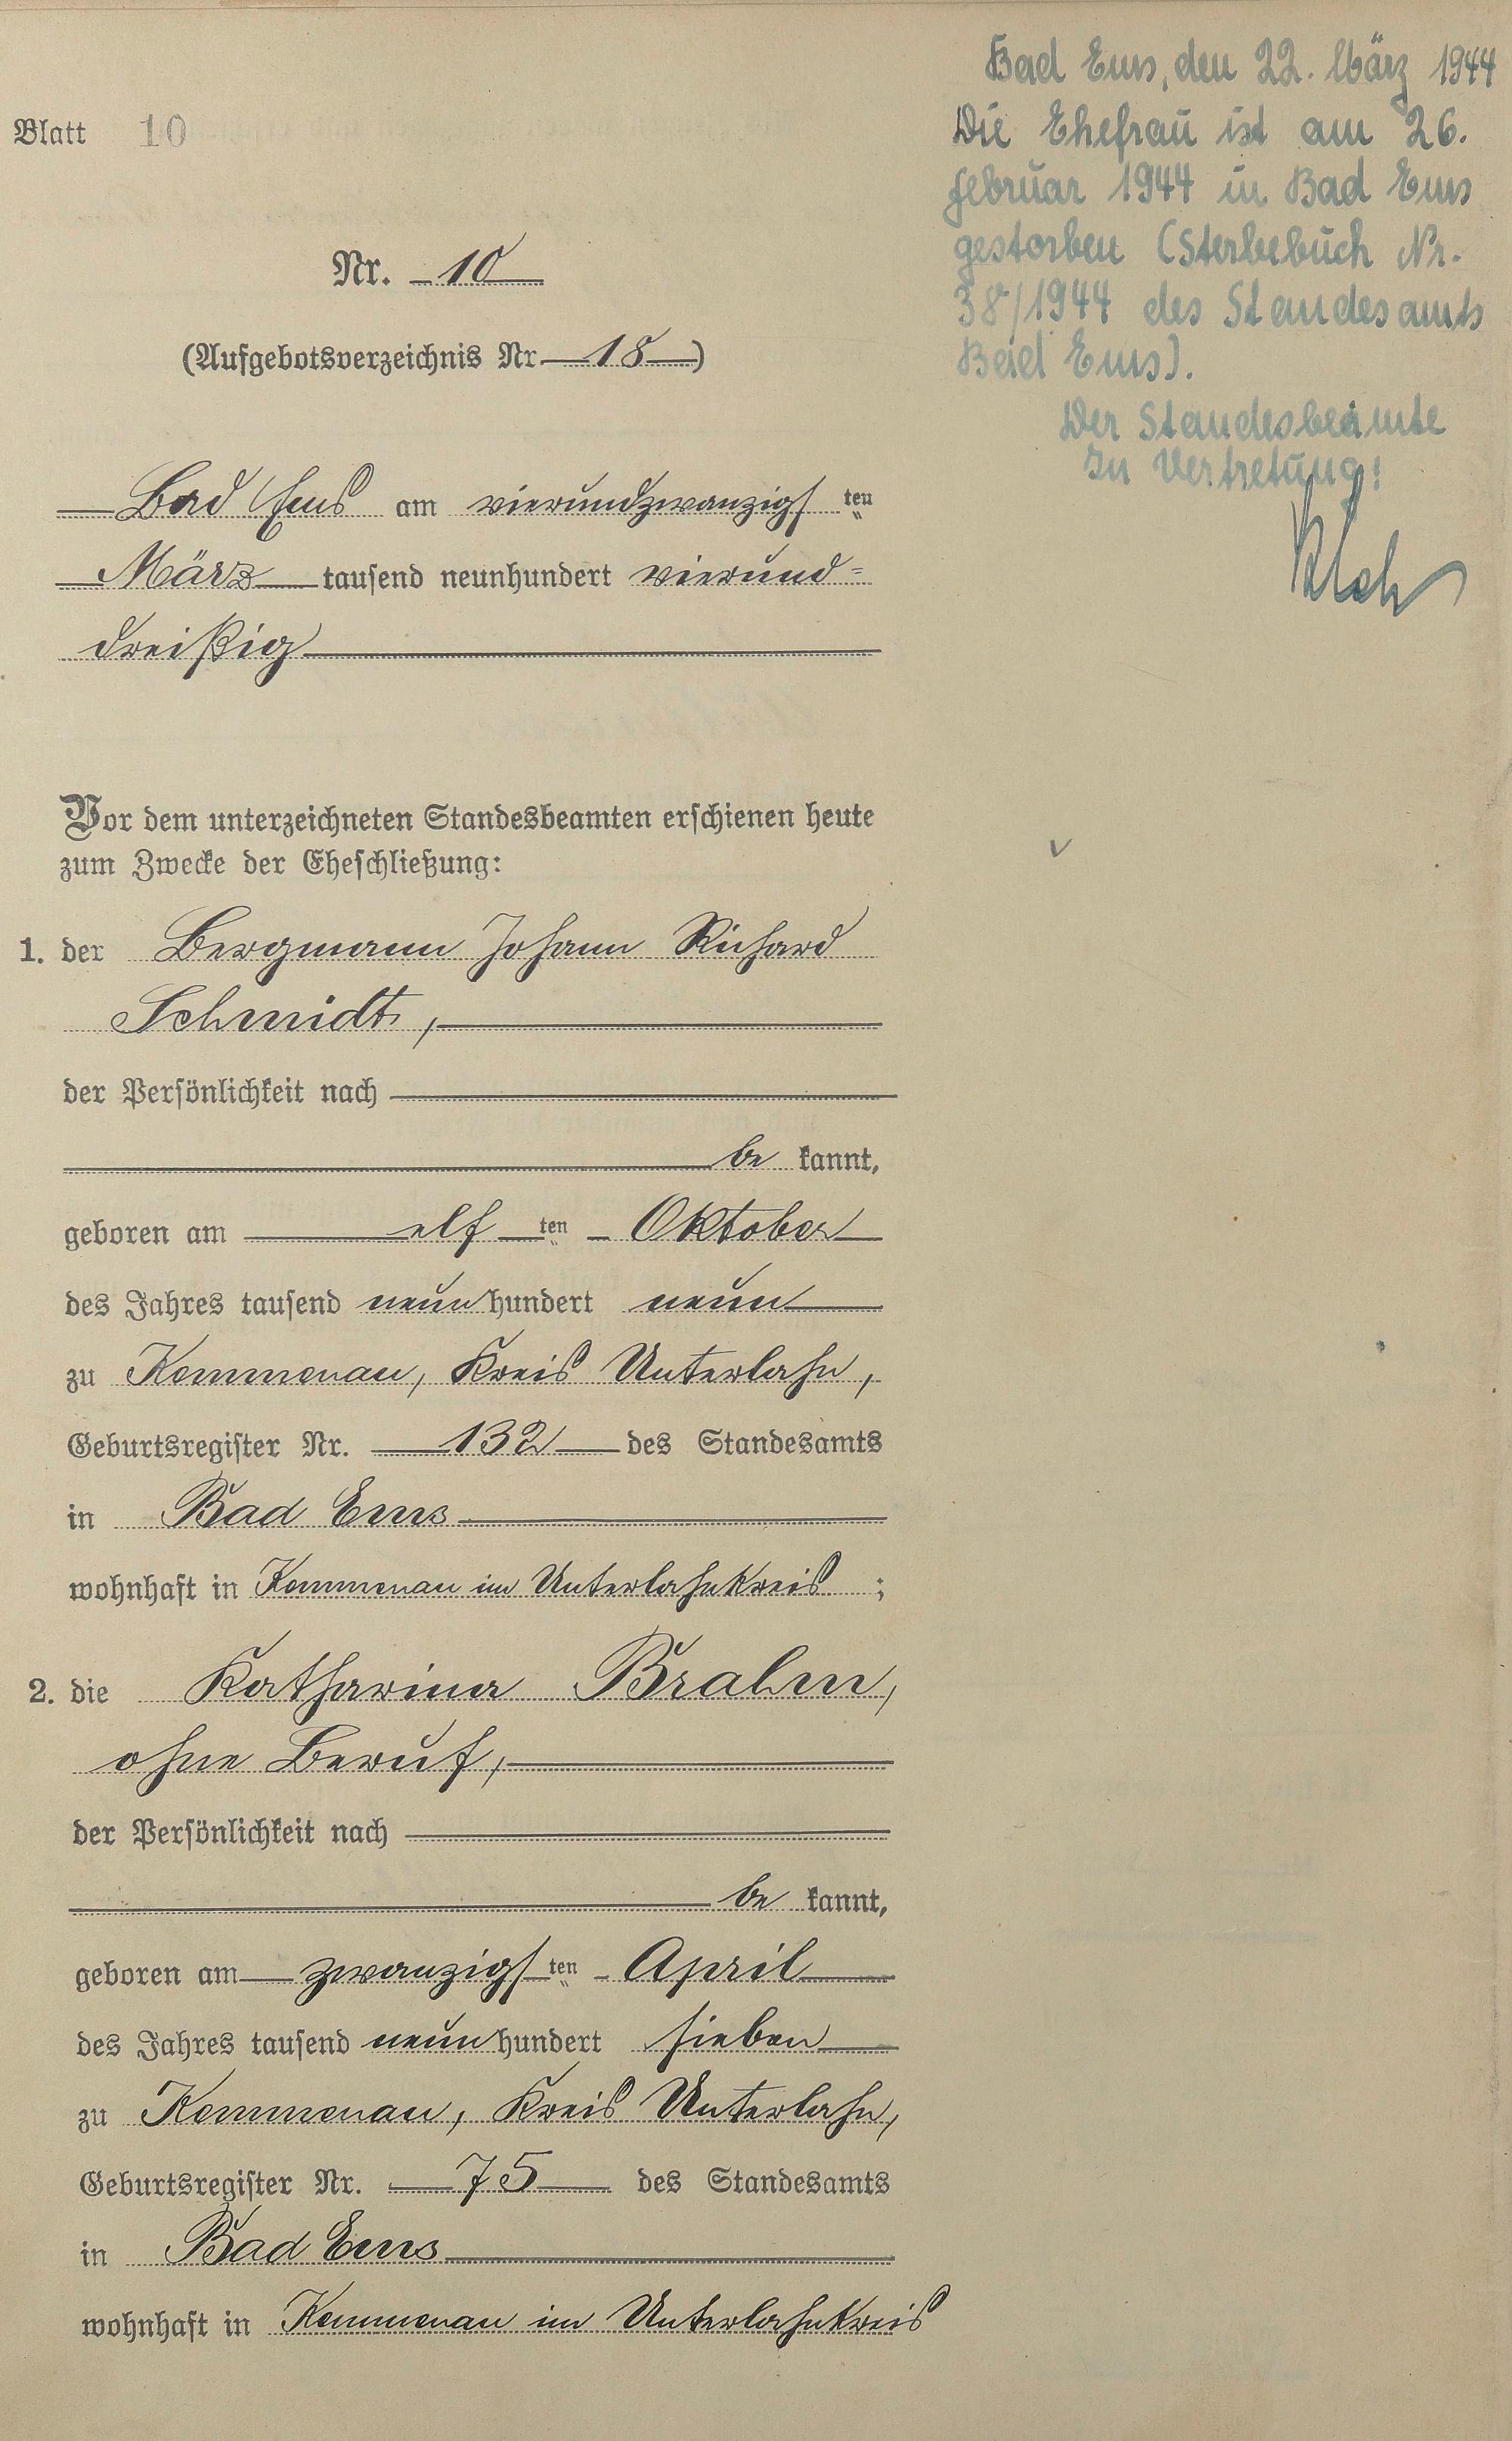 Blatt 10
Nr. 10
(Aufgebotsverzeichnis Nr. 18)
Bad Ems am vierundzwanzigsten
März tausend neunhundert vierund=
dreißig
Vor dem unterzeichneten Standesbeamten erschienen heute
zum Zwecke der Eheschließung:
1. der Bergmann Johann Richard
Schmidt,
der Persönlichkeit nach
be kannt,
geboren am elf ten Oktober
des Jahres tausend neun hundert neun
zu Kemmenau, Kreis Unterlahn,
Geburtsregister Nr. 132 des Standesamts
in Bad Ems
wohnhaft in Kemmenau im Unterlahnkreis ;
2. die Katharina Brahm,
ohne Beruf,
der Persönlichkeit nach
be kannt,
geboren am zwanzigsten April
des Jahres tausend neun hundert sieben
zu Kemmenau, Kreis Unterlahn,
Geburtsregister Nr. 75 des Standesamts
in Bad Ems
wohnhaft in Kemmenau im Unterlahnkreis
Bad Ems, den 22. März 1944
Die Ehefrau ist am 26.
Februar 1944 in Bad Ems
gestorben (Sterbebuch Nr.
38/1944 des Standesamts
Bad Ems).
Der Standesbeamte
In Vertretung: